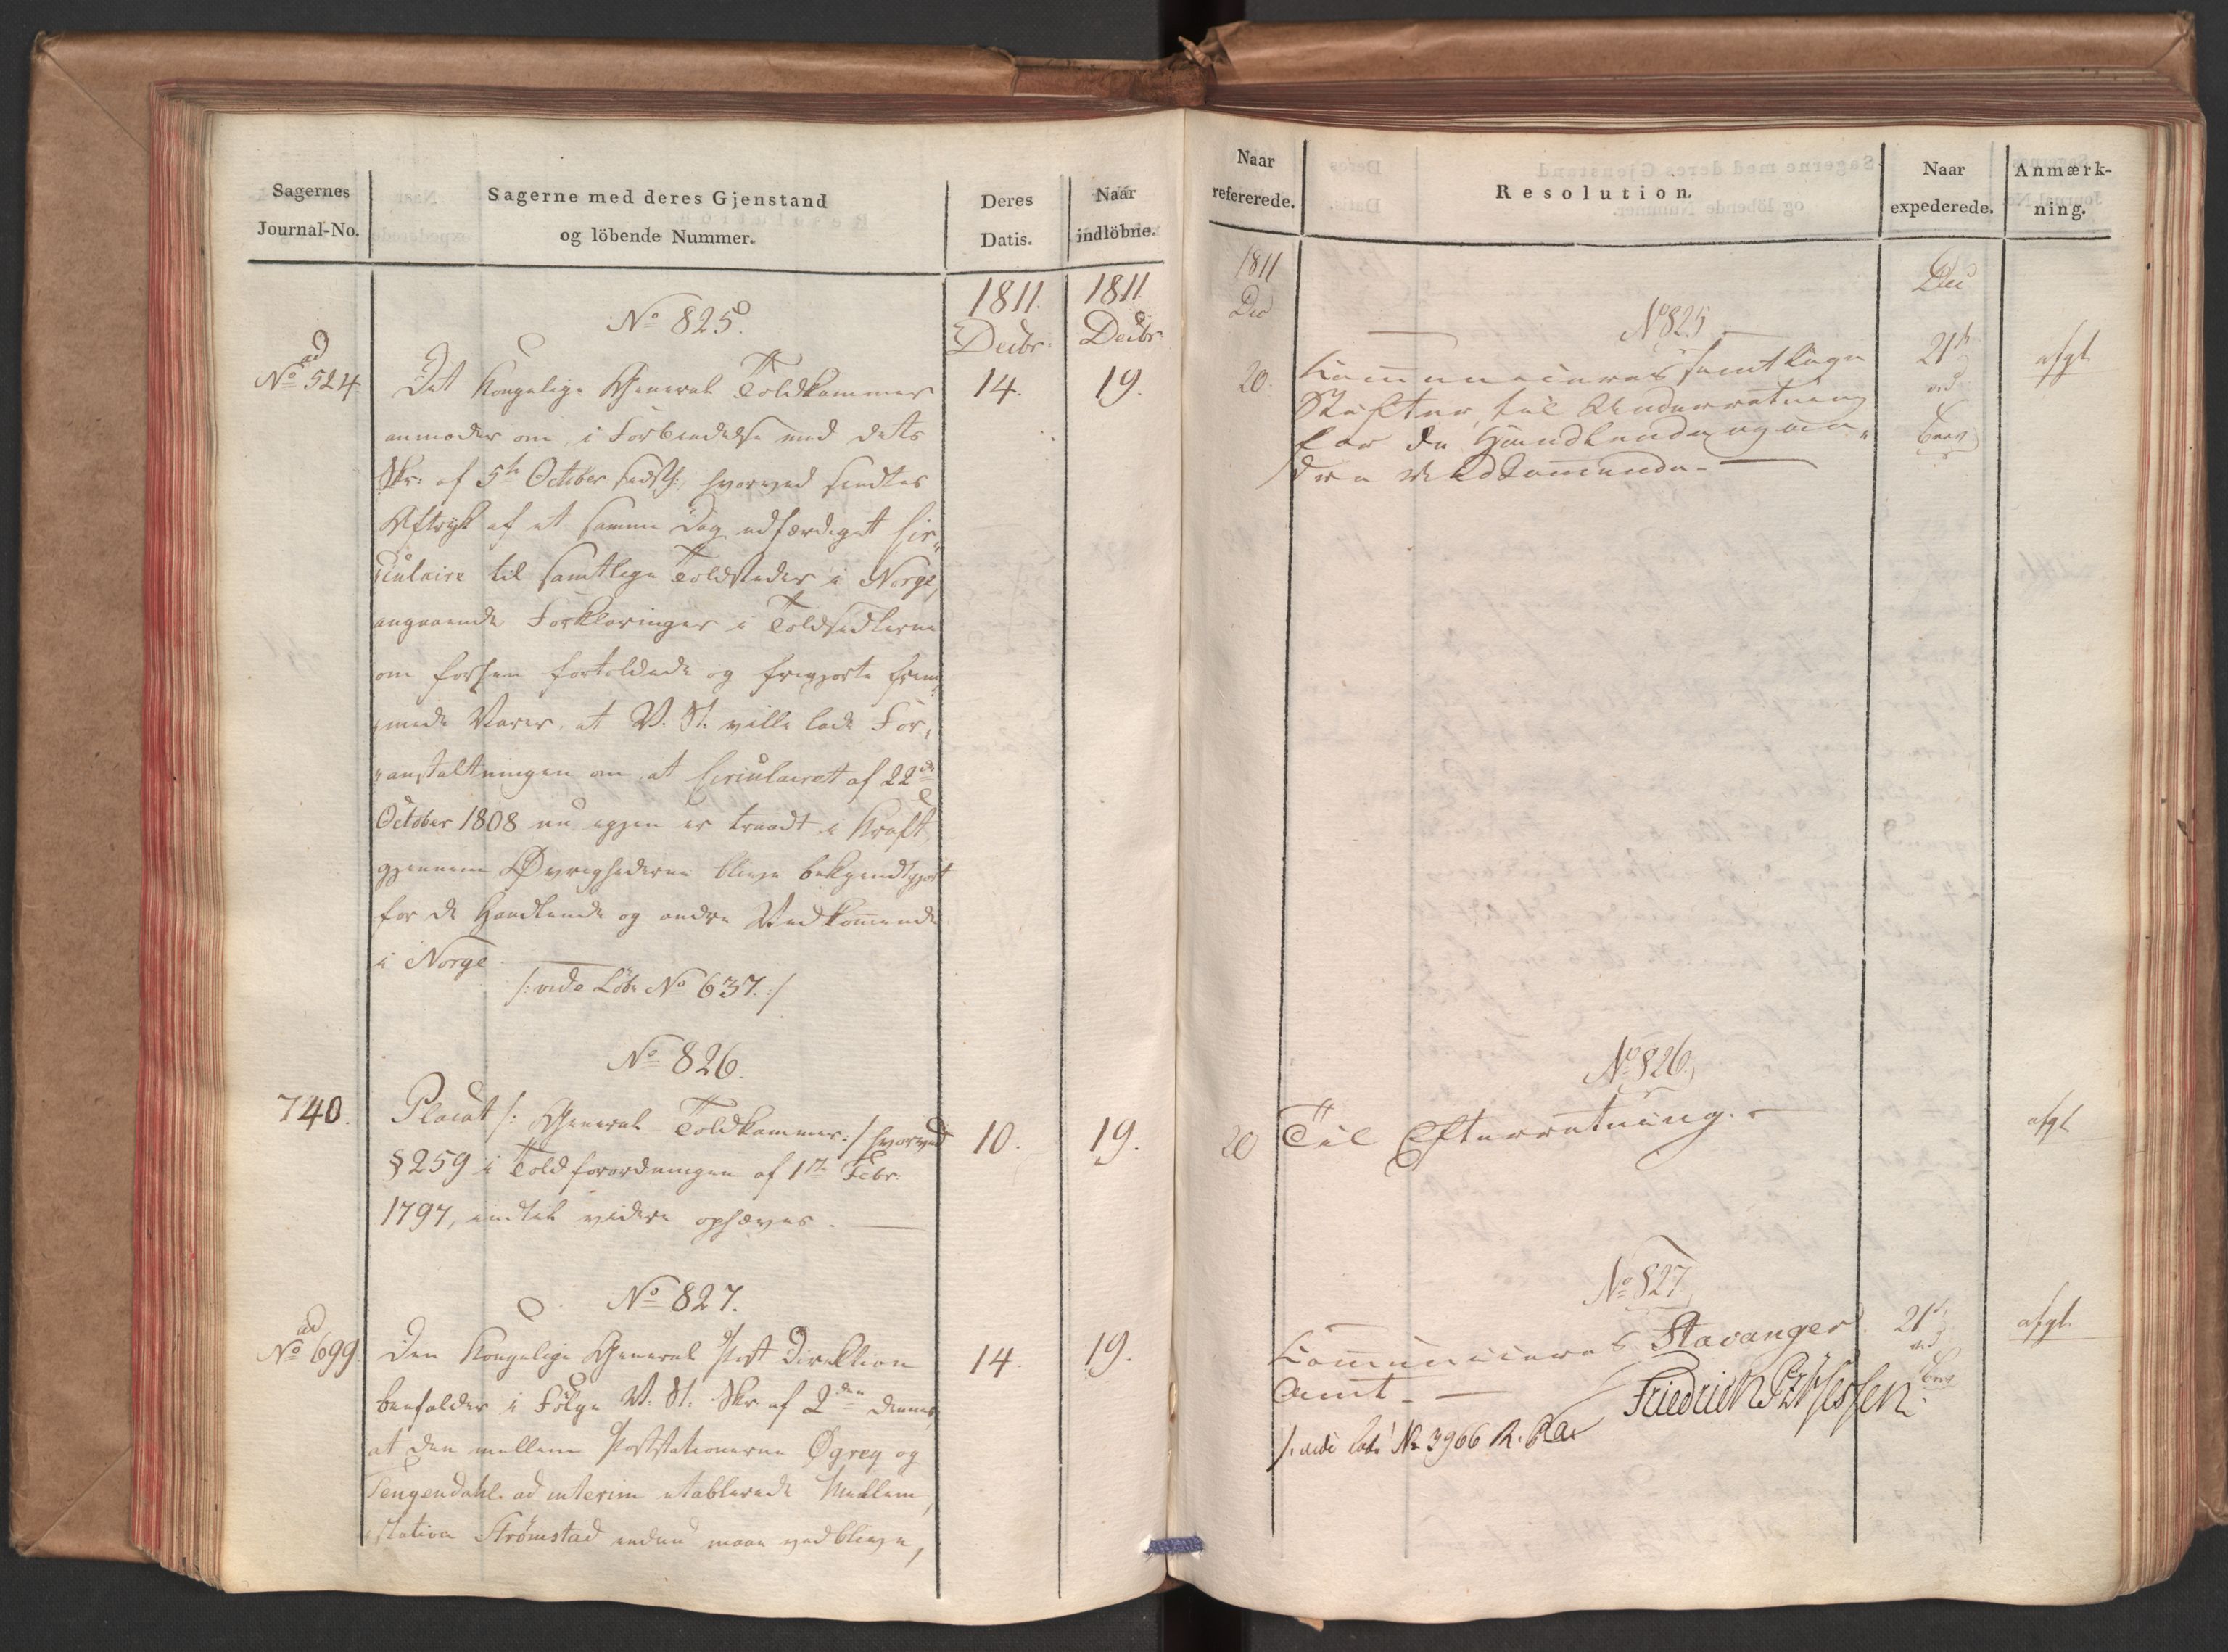 Sagernes
Journal-No.
Sagerne med deres Gjenstand
og löbende Nummer.
Deres
Datis.
Naar
indlöbne.
1811.
Decbr:
1811
Decbr
No 825.
ad
No 524.
Det Kongelige General Toldkammer
anmoder om, i Forbindelse med dets
Skr: af 5te October sidstl:, hvorved sendtes
Aftryk af et samme Dag udfærdiget Cir-
culaire til samtlige Toldsteder i Norge,
angaaende Forklaringer i Toldsedlerne
om forhen fortoldede og frigjorte frem-
mede Varer, at V. St. ville lade For-
anstaltningen om at Circulairet af 22de
October 1808 nu igjen er traadt i Kraft,
gjennem Øvrighederne blive bekjendtgjort
for de Handlende og andre Vedkommende
i Norge.
/: vide Löb: No 637. :/
14.
19.
No 826.
740.
Placat /: General Toldkammer :/ hvorved
§ 259 i Toldforordningen af 1ste Febr:
1797, indtil videre ophæves.
10.
19.
No 827.
ad
No 699
Den Kongelige General Post Direktion
beholder i Følge V. St. Skr af 2den dennes,
at den mellem Poststationerne Øgrey og
Tengendahl ad interim etablerede Mellem-
station Strømstad endnu maae vedblive,
14.
19.
Naar
refererede.
Resolution.
Naar
expederede.
Anmærk-
ning.
1811
Dec
Dec
No 825
20.
Communiceres samtlige
Stifter, til Underretning
for de Handlende og an-
dre Vedkommende.
21
afgl
No 826.
20
Til Efterretning.
afgl
No 827
Communiceres Stavanger
Amt.
21
afgl.
/: vide No 3966